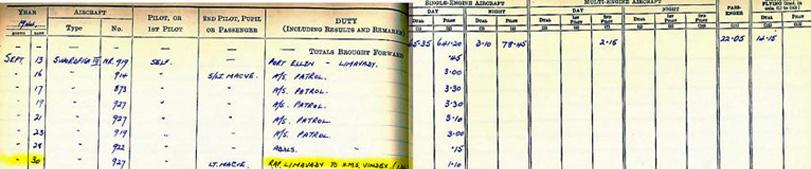 YEAR AIRCRAFT PILOT, OR 1ST PILOT 2ND PILOT, PUPIL OR PASSENGER DUTY (INCLUDING RESULTS AND REMARKS) SINGLE-ENGINE AIRCRAFT MULTI-ENGINE AIRCRAFT PASS-ENGER
1944 Type No. DAY NIGHT DAY NIGHT
MONTH DATE DUAL PILOT DUAL PILOT DUAL 1ST PILOT 2ND PILOT DUAL 1ST PILOT 2ND PILOT DUAL PILOT
— — — — — — TOTALS BROUGHT FORWARD 641.20 3.10 78.45 2.15 22.05 14.15
SEPT. 13 SWORDFISH III NR. 919 SELF. — PORT ELLEN - LIMAVADY. .45
" 16 " 914 " S/LT MACVE. A/S PATROL. 3.00
" 17 " 873 " " A/S. PATROL. 3.30
" 19 " 927 " " A/S. PATROL. 3.30
" 21 " 927 " " A/S. PATROL. 3.10
" 23 " 919 " " A/S. PATROL. 3.00
" 28 " 922 " — ADDLS. " .15
" 30 " 927 " LT. MACVE. LIMAVADY TO H.M.S. VINDEX. 1.10